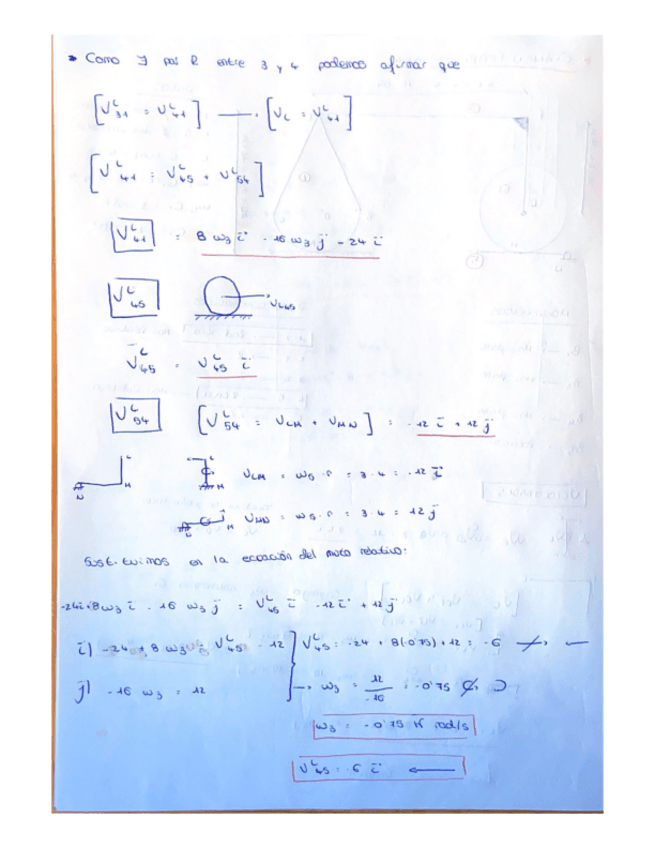 * Como ∃ par R entre 3 y 4 podemos afirmar que
[V^L_31 = V^L_41] → [V_L = V^L_41]
[V^L_41 = V^L_45 + V^L_54]
V^L_41 = 8 ω3 i - 16 ω3 j - 24 i
V^L_45 V_L45
V^L_45 = V^L_45 i
V^L_54 [V^L_54 = V_LM + V_MN] = -12 i + 12 j
V_LM = ω5 · r = 3 · 4 = -12 i
N M L M V_MN = ω5 · r = 3 · 4 = 12 j
Sustituimos en la ecuación del mvto relativo:
-24i + 8ω3 i - 16 ω3 j = V^L_45 i - 12 i + 12 j
i) -24 + 8 ω3 = V^L_45 - 12 V^L_45 = -24 + 8(-0'75) + 12 = -6
j) -16 ω3 = 12 → ω3 = 12 / -16 = -0'75
ω3 = -0'75 k rad/s
V^L_45 = -6 i ←